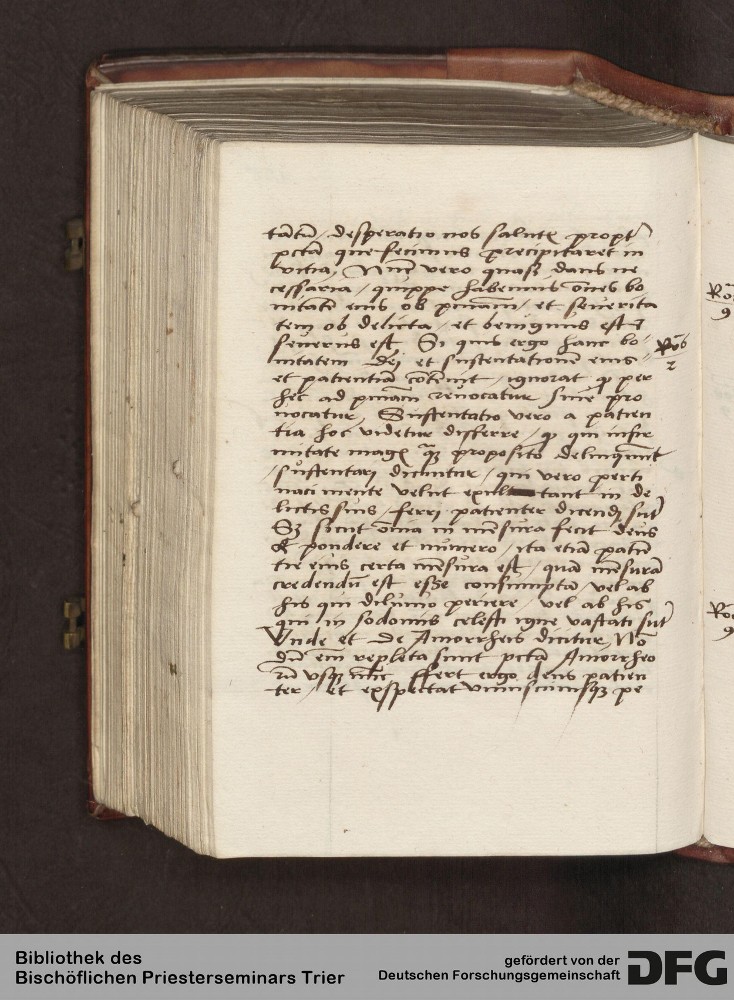 tātū, desperatio nos salutꝭ propt̉
pctā que fecimus precipitaret in
vitia, Nūc vero quasi dans ne
cessaria, quippe habemus ōnes bo
nitatē eius ob pniam, et severita
tem ob delicta, et benignus est ⁊
severus est Si quis ergo hanc bo
nitatem Dej et sustentationē eius
et patientiā cōtēnit, ignorat qꝫ per
hec ad pniam revocatur sive pro
vocatur, Sustentatio vero a patien
tia hoc videtur differre, qꝫ qui infir
mitate magꝭ qꝫ proposito delinquunt
sustentarj dicuntur, qui vero perti
naci mente velut exultant in de
lictis suis, ferri patienter dicendj sūt
Sꝫ sicut ōnia in mēsura fecit deus
& pondere et numero, ita etiā patiē
tie eius certa mēsura est, quā mēsurā
credendū est esse consumptā, vel ab
his qui diluvio periere, vel ab his
qui in sodomis celesti igne vastati sūt
Vnde et de Amorrheis dicitur, Nō
dū em̄ repleta sunt pctā Amorrheo
rū vsqꝫ nūc ffert ergo deus patien
ter, et exspectat vniuscuiusqꝫ pe
Rō6
2
Rō
9
Rō
9
Bibliothek des
Bischöflichen Priesterseminars Trier
gefördert von der
Deutschen Forschungsgemeinschaft
DFG